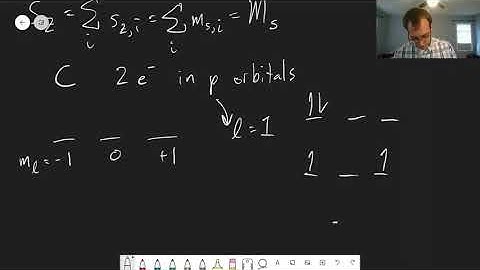 S_z = Σ_i s_{z,i} = Σ_i m_{s,i} = M_s
C 2 e⁻ in p orbitals
l = 1
1⇂ _ _
_ _ _
m_l = -1 0 +1
1 _ 1